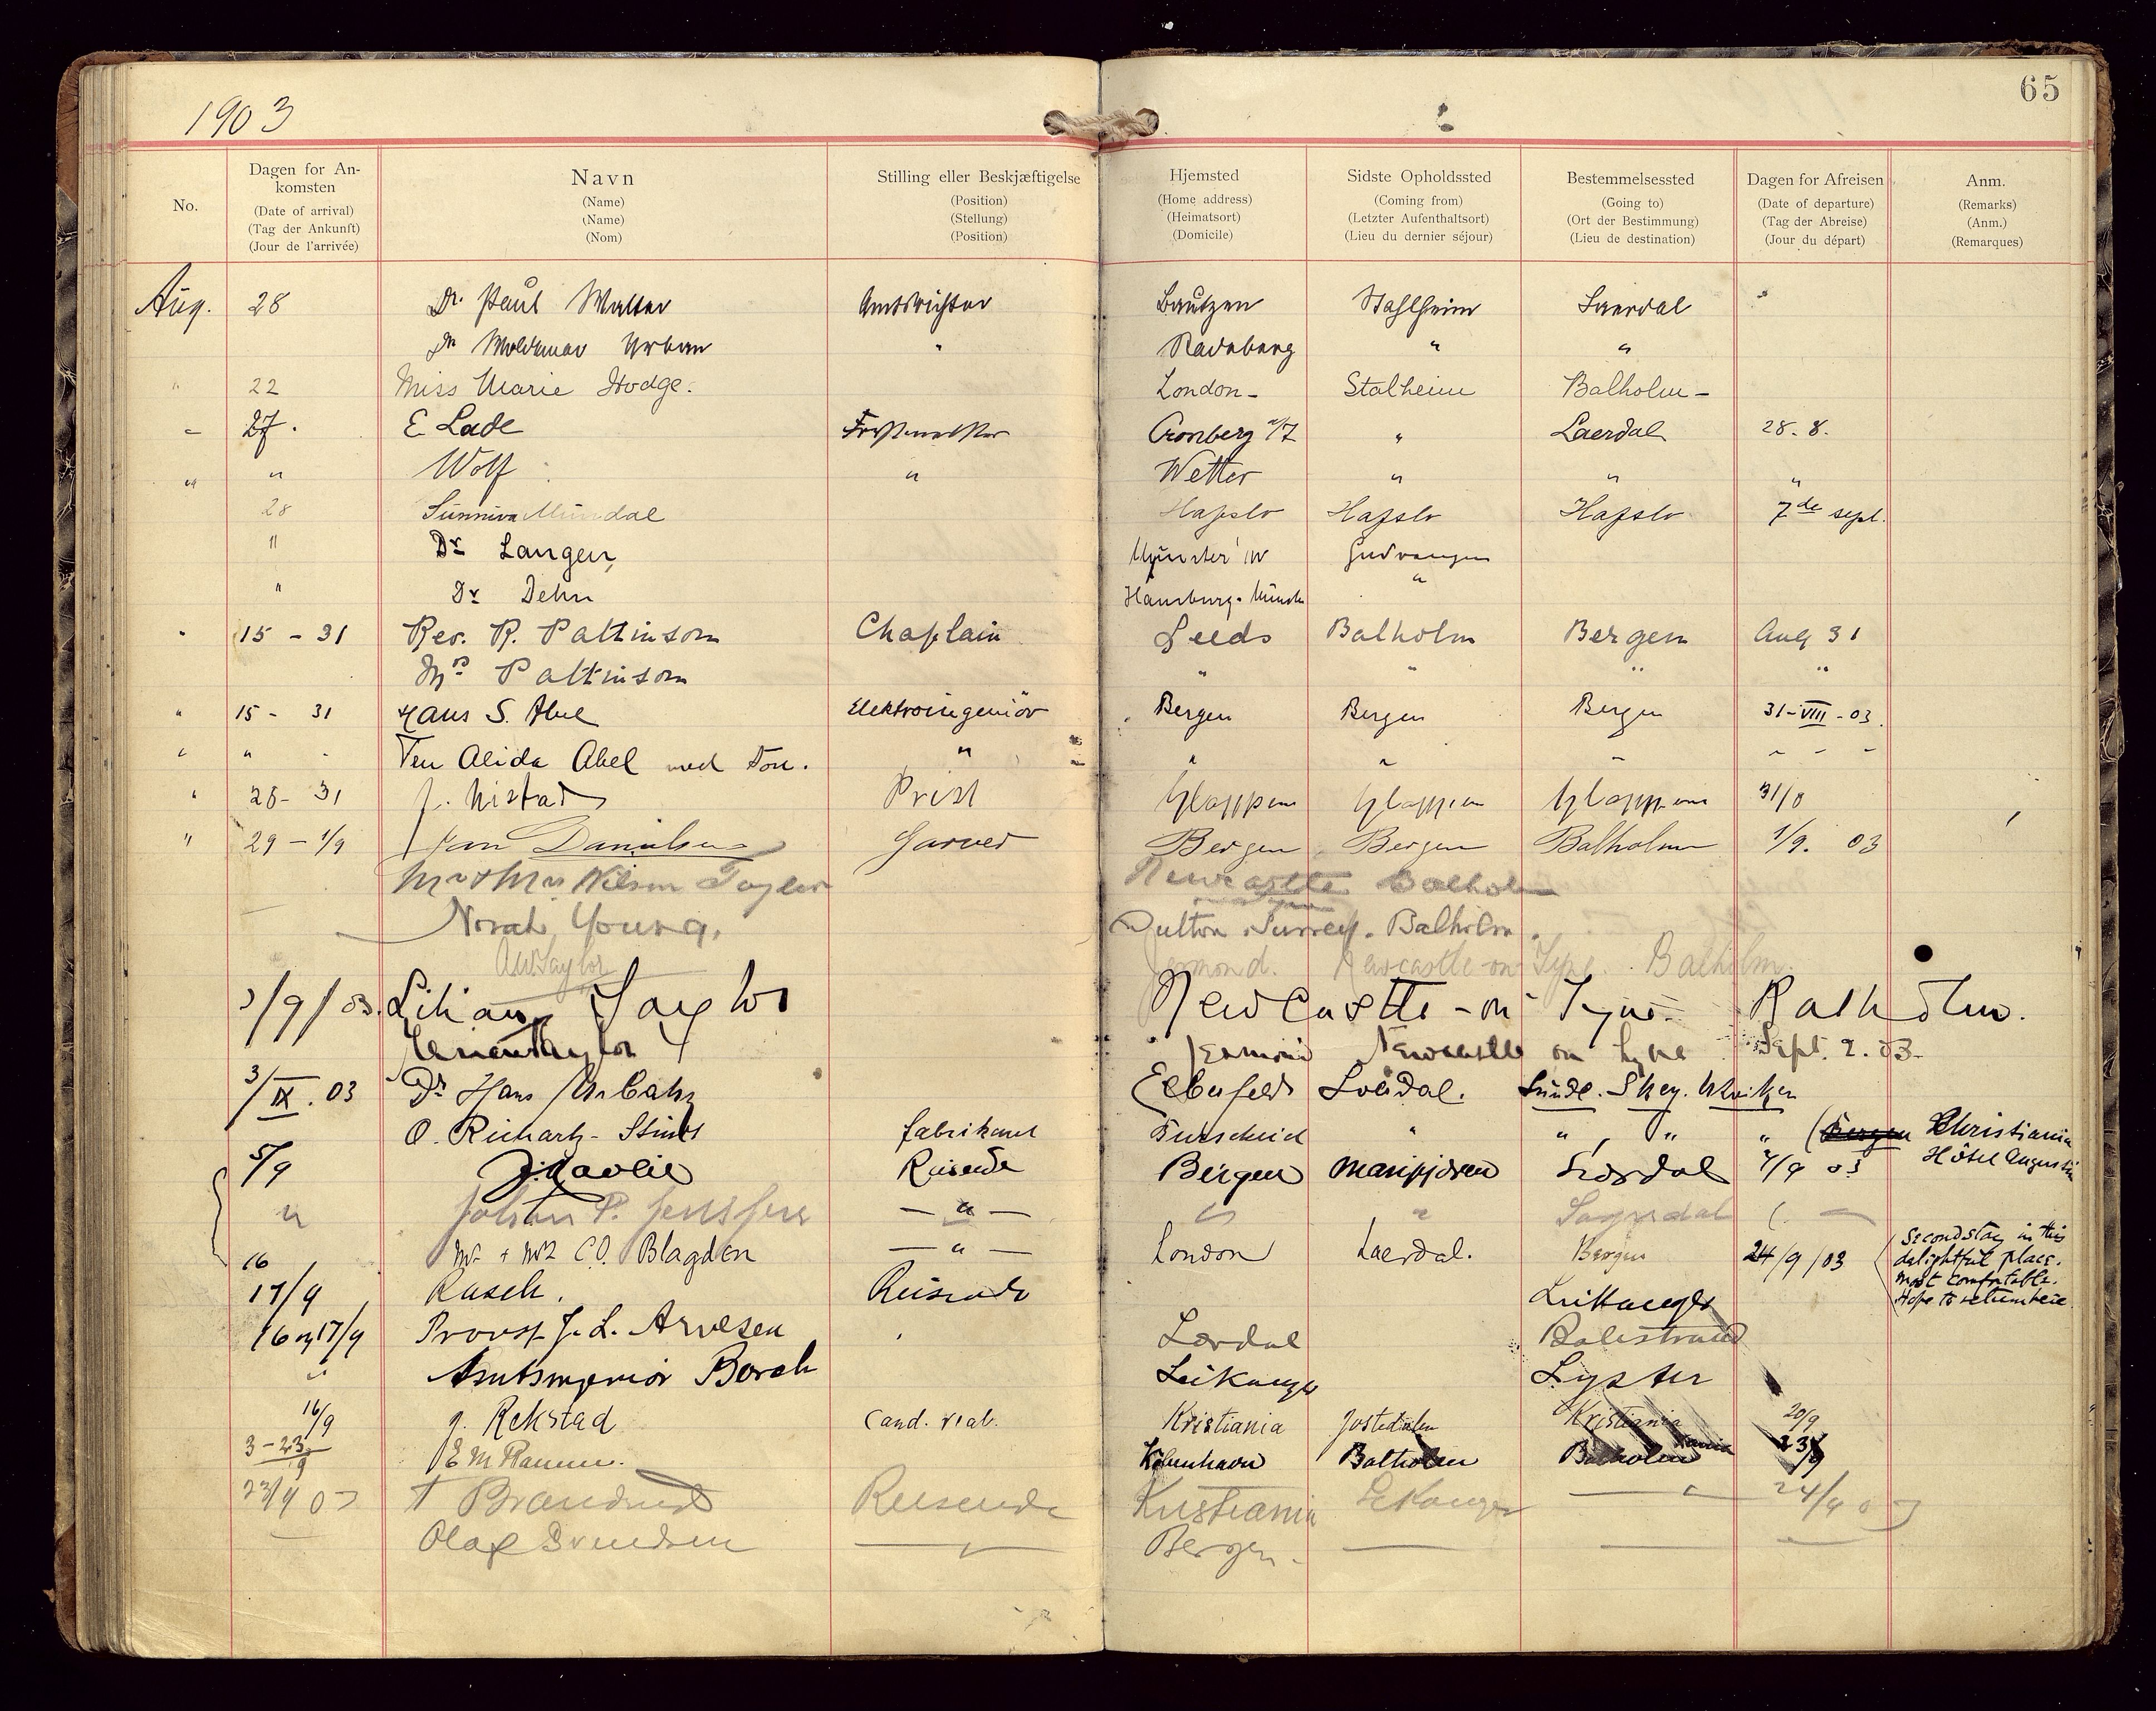 1903
65
No.
Dagen for An-
komsten
(Date of arrival)
(Tag der Ankunft)
(Jour de l'arrivée)
Navn
(Name)
(Name)
(Nom)
Stilling eller Beskjæftigelse
(Position)
(Stellung)
(Position)
Hjemsted
(Home address)
(Heimatsort)
(Domicile)
Sidste Opholdssted
(Coming from)
(Letzter Aufenthaltsort)
(Lieu du dernier séjour)
Bestemmelsessted
(Going to)
(Ort der Bestimmung)
(Lieu de destination)
Dagen for Afreisen
(Date of departure)
(Tag der Abreise)
(Jour du départ)
Anm.
(Remarks)
(Anm.)
(Remarques)
Aug. 28 Dr. Paul Walter Amtsrichter Bautzen Stahlheim Laerdal
Dr Woldemar Urban " Radeberg " "
" 22 Miss Marie Hodge. London - Stalheim Balholm -
- 27. E Lade Cronberg Laerdal 28. 8.
" " Wolf " Wetter " " "
28 Sunniva Mundal Hafslo Hafslo Hafslo 7de sept.
" Dr Langen, Münster i W Gudvangen
" Dr Dehn Hamburg "
" 15 - 31 Rev. R. Pattinson Chaplain Leeds Balholm Bergen Aug 31
Mrs Pattinson " " " "
" 15 - 31 Hans S. Abel Elektroingeniör Bergen Bergen Bergen 31-VIII-03.
" " - Alida Abel med " " " " - - -
" 28 - 31 J. Nistad Prest Gloppen Gloppen Gloppen 31/8
" 29 - 1/9 Danielsen Garver Bergen Bergen Balholm 1/9. 03
Mr & Mrs Wilson Taylor Newcastle Balholm
Norah Young. Sutton Surrey. Balholm.
A W Taylor Jesmond. Newcastle-on Tyne. Balholm.
3/9/03. Lilian Taylor Newcastle-on Tyne. Balholm.
Taylor Jesmond Newcastle on Tyne Sept. 2. 03.
3/IX. 03 Dr Hans Elberfeld Loerdal.
O. Richartz - fabrikant " " , " " (Bergen Christiania
Hôtel Augustin
5/9 Reisende Bergen Marifjören Lærdal 03
" Johan P. — " — " " Sogndal
16 Mr + Mrs C.O. Blagden — " — London Laerdal. Bergen 24/9/03 Second stay in this
delightful place.
Most comfortable.
Hope to return here
17/9 Rasch. Reisende Leikanger
16 og 17/9 Provst J. L. Arvesen Lærdal Balestrand
" Amtsingeniör Borch Leikanger Lyster
16/9 J. Rekstad Cand. real. Kristiania Jostedalen Kristiania 20/9
3 - 23/9 E M København Balholm Balholm 23/9
23/9 03 Reisende Kristiania Lekanger — " — 24/9 03
— Olaf Svendsen — " — Bergen. — — —